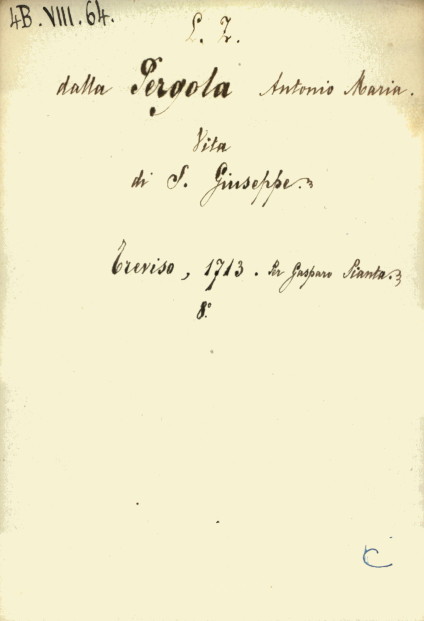 4B.VIII.64.
L. Z.
dalla Pergola Antonio Maria.
Vita
di S. Giuseppe.
Treviso, 1713. Per Gasparo Pianta.
8°
C